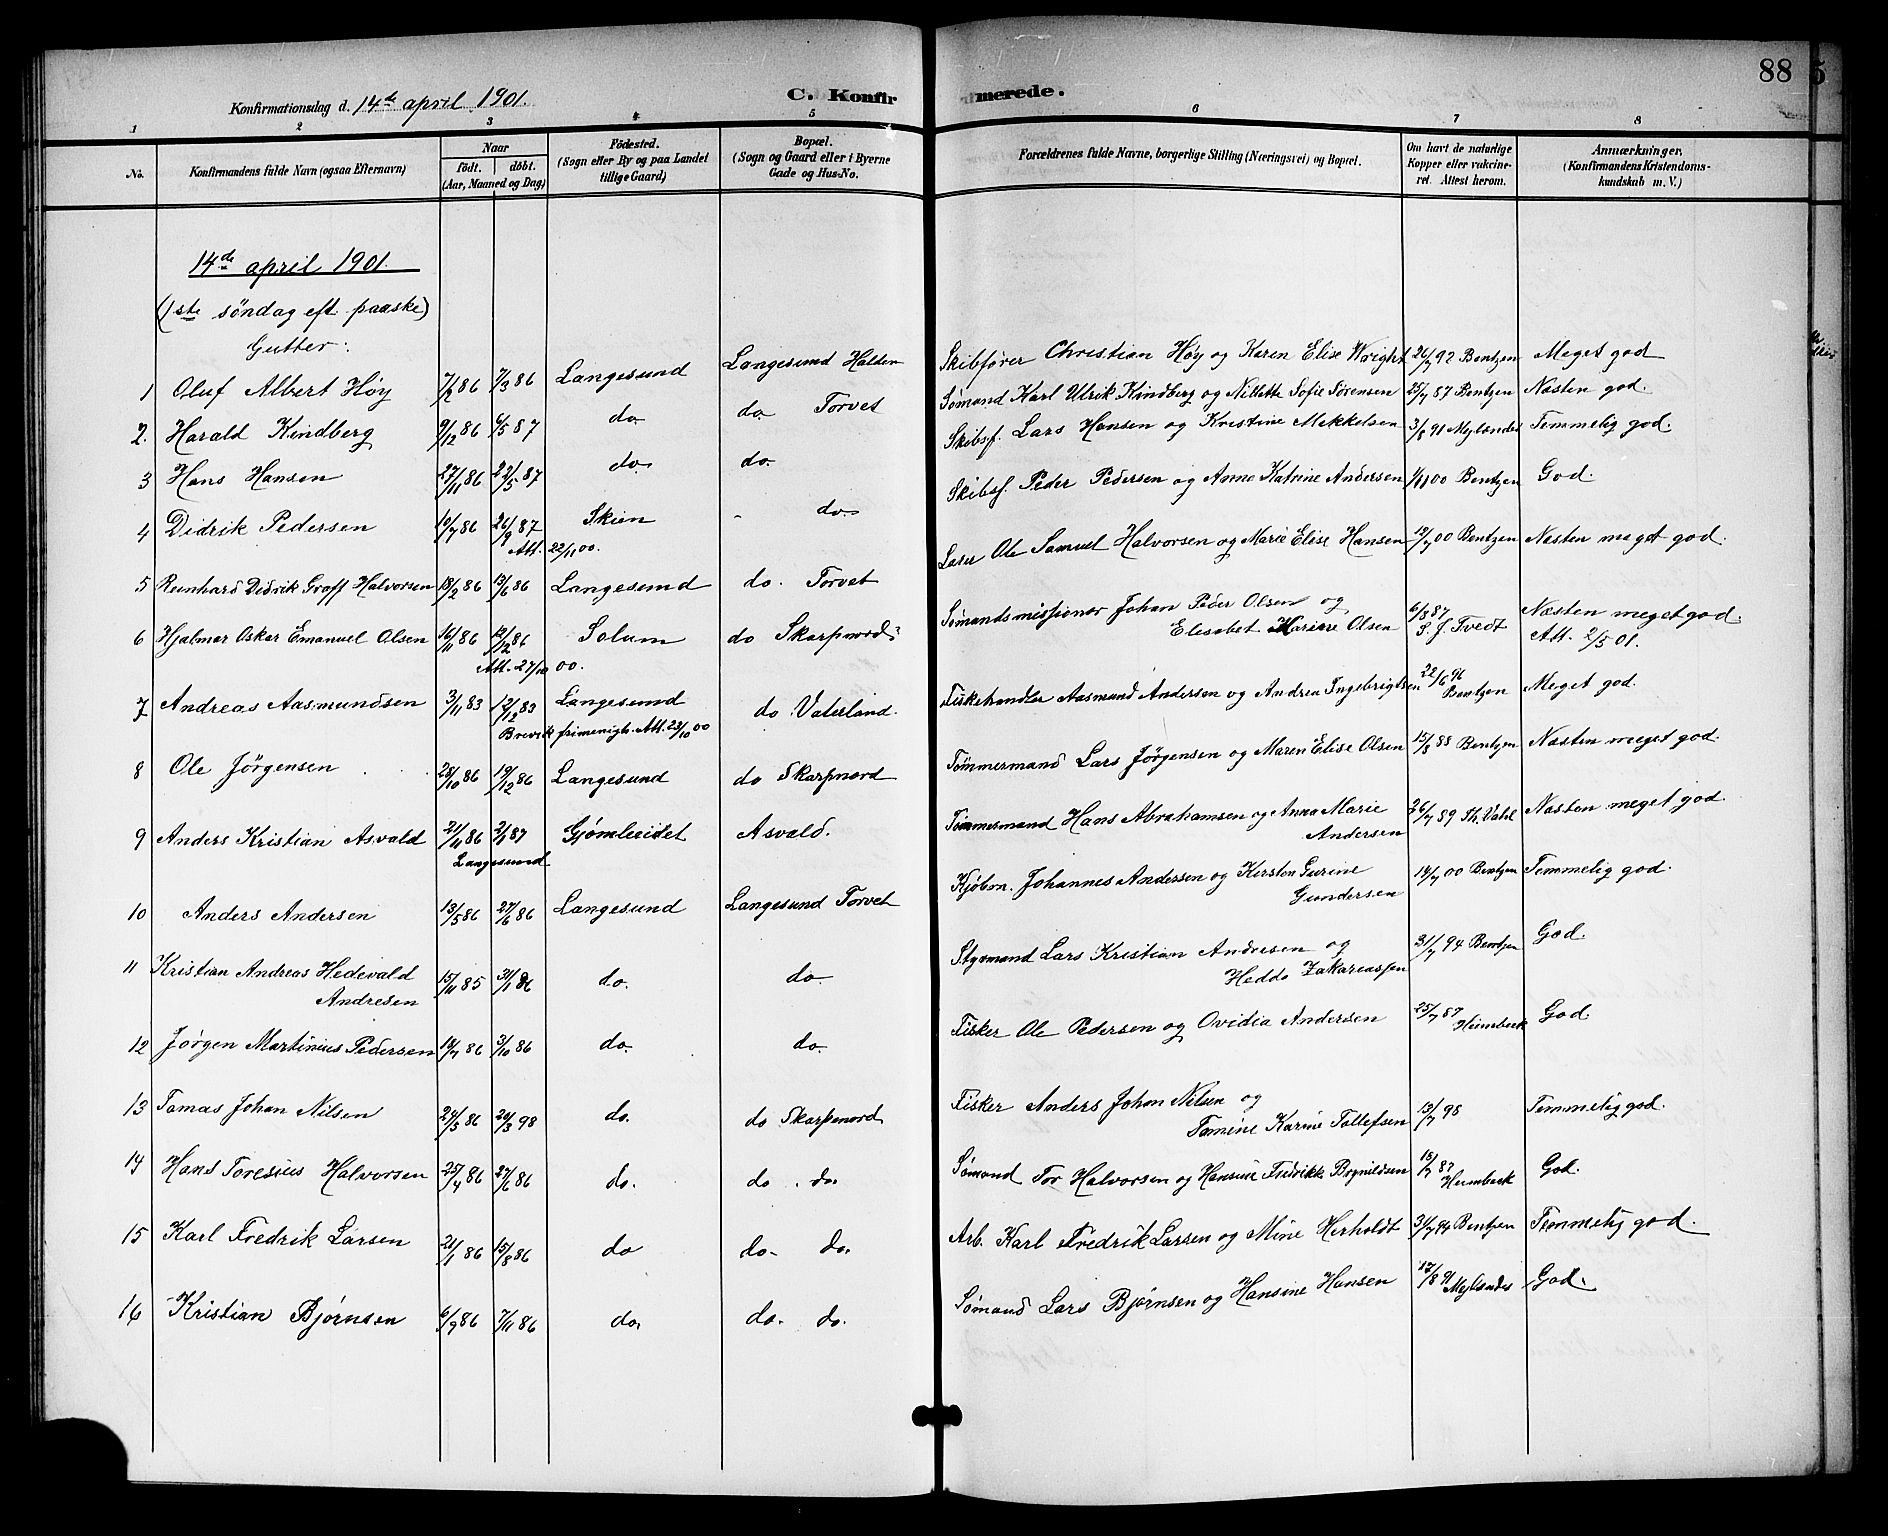 88
Konfirmationsdag d. 14de april 1901.
C. Konfirmerede.
1 2 3 4 5 6 7 8
No.
Konfirmandens fulde Navn (ogsaa Efternavn)
Naar
födt. döbt.
(Aar, Maaned og Dag)
Födested.
(Sogn eller By og paa Landet
tillige Gaard)
Bopæl.
(Sogn og Gaard eller i Byerne
Gade og Hus-No.
Forældrenes fulde Navne, borgerlige Stilling (Næringsvei) og Bopæl.
Om havt de naturlige
Kopper eller vakcine-
ret. Attest herom.
Anmærkninger.
(Konfirmandens Kristendoms-
kundskab m. V.)
14de april 1901.
(1ste söndag eft. paaske)
Gutter:
1 Oluf Albert Höy 7/2 86 7/3 86 Langesund Langesund Halsen Skibsfører Christian Höy og Karen Elise Wright 26/7 92 Bentzen Meget god
2. Harald Kindberg 9/12 86 6/5 87 do. do Torvet Sömand Karl Ulrik Kindberg og Nillette Sofie Sörensen 25/7 87 Bentzen Næsten god.
3 Hans Hansen 27/11 86 22/5 87 do. do. Skibsf. Lars Hansen og Kristine Mikkelsen 3/8 91 Mejlænder Temmelig god.
4 Didrik Pedersen 10/7 86 26/9 87 Skien - do. Skibsf. Peder Pedersen og Anne Katrine Andersen 1/11 00 Bentzen God
Att. 22/11 00.
5 Reinhard Didrik Graff Halvorsen 18/2 86 13/6 86 Langesund do. Torvet Ole Samuel Halvorsen og Marie Elise Hansen 19/7 00 Bentzen Næsten meget god.
6 Hjalmar Oskar Emanuel Olsen 16/11 86 12/2 86 Solum do Skarpnord Sömandsmissionær Johan Peder Olsen og
Elisabet Marine Olsen 6/8 87 S. J. Tvedt Næsten meget god.
Att. 2/5 01.
Att. 27/10 00.
7 Andreas Aasmundsen 3/11 83 12/12 83 Langesund do Vaterland. Fiskehandler Aasmund Andersen og Andrea Ingebrigtsen 22/6 96 Bentzen Meget god.
Brevik frimenigh. Att. 23/10 00
8 Ole Jörgensen 28/10 86 19/12 86 Langesund do Skarpnord Tömmermand Lars Jörgensen og Maren Elise Olsen 15/8 88 Bentzen Næsten meget god.
9 Anders Kristian Asvald 21/11 86 2/1 87 Gjömleeidet Asvald. Tømmermand Hans Abrahamsen og Anna Marie
Andersen 26/7 89 Th. Vahl Næsten meget god.
Langesund
10 Anders Andersen 13/5 86 27/6 86 Langesund Langesund Torvet Kjöbm. Johannes Andersen og Kirsten Gurine
Gundersen 19/7 00 Bentzen Temmelig god.
11 Kristian Andreas Hedevald
Andresen 15/11 85 31/1 86 do. do. Styrmand Lars Kristian Andresen og
Hedda Zakariassen 31/7 94 Bentzen God.
12 Jørgen Martinius Pedersen 14/7 86 3/10 86 do. do. Fisker Ole Pedersen og Ovidia Andersen 25/7 87 Heimbeck God.
13 Tomas Johan Nilsen 24/5 86 20/3 98 do. do Skarpenord Fisker Anders Johan Nilsen og
Tomine Karine Tollefsen 13/7 98 Temmelig god.
14 Hans Toresius Halvorsen 25/4 86 27/6 86 do. do. do. Sömand Tor Halvorsen og Hansine Fredrikke Brynildsen 15/7 87 Heimbeck God.
15 Karl Fredrik Larsen 21/1 86 15/8 86 do do- do. Arb. Karl Fredrik Larsen og Mine Herholdt 31/7 94 Bentzen Temmelig god.
16 Kristian Bjørnsen 6/9 86 7/11 86 do. do. do. Sømand Lars Bjørnsen og Hansine Hansen 17/8 91 Mejlænder God.